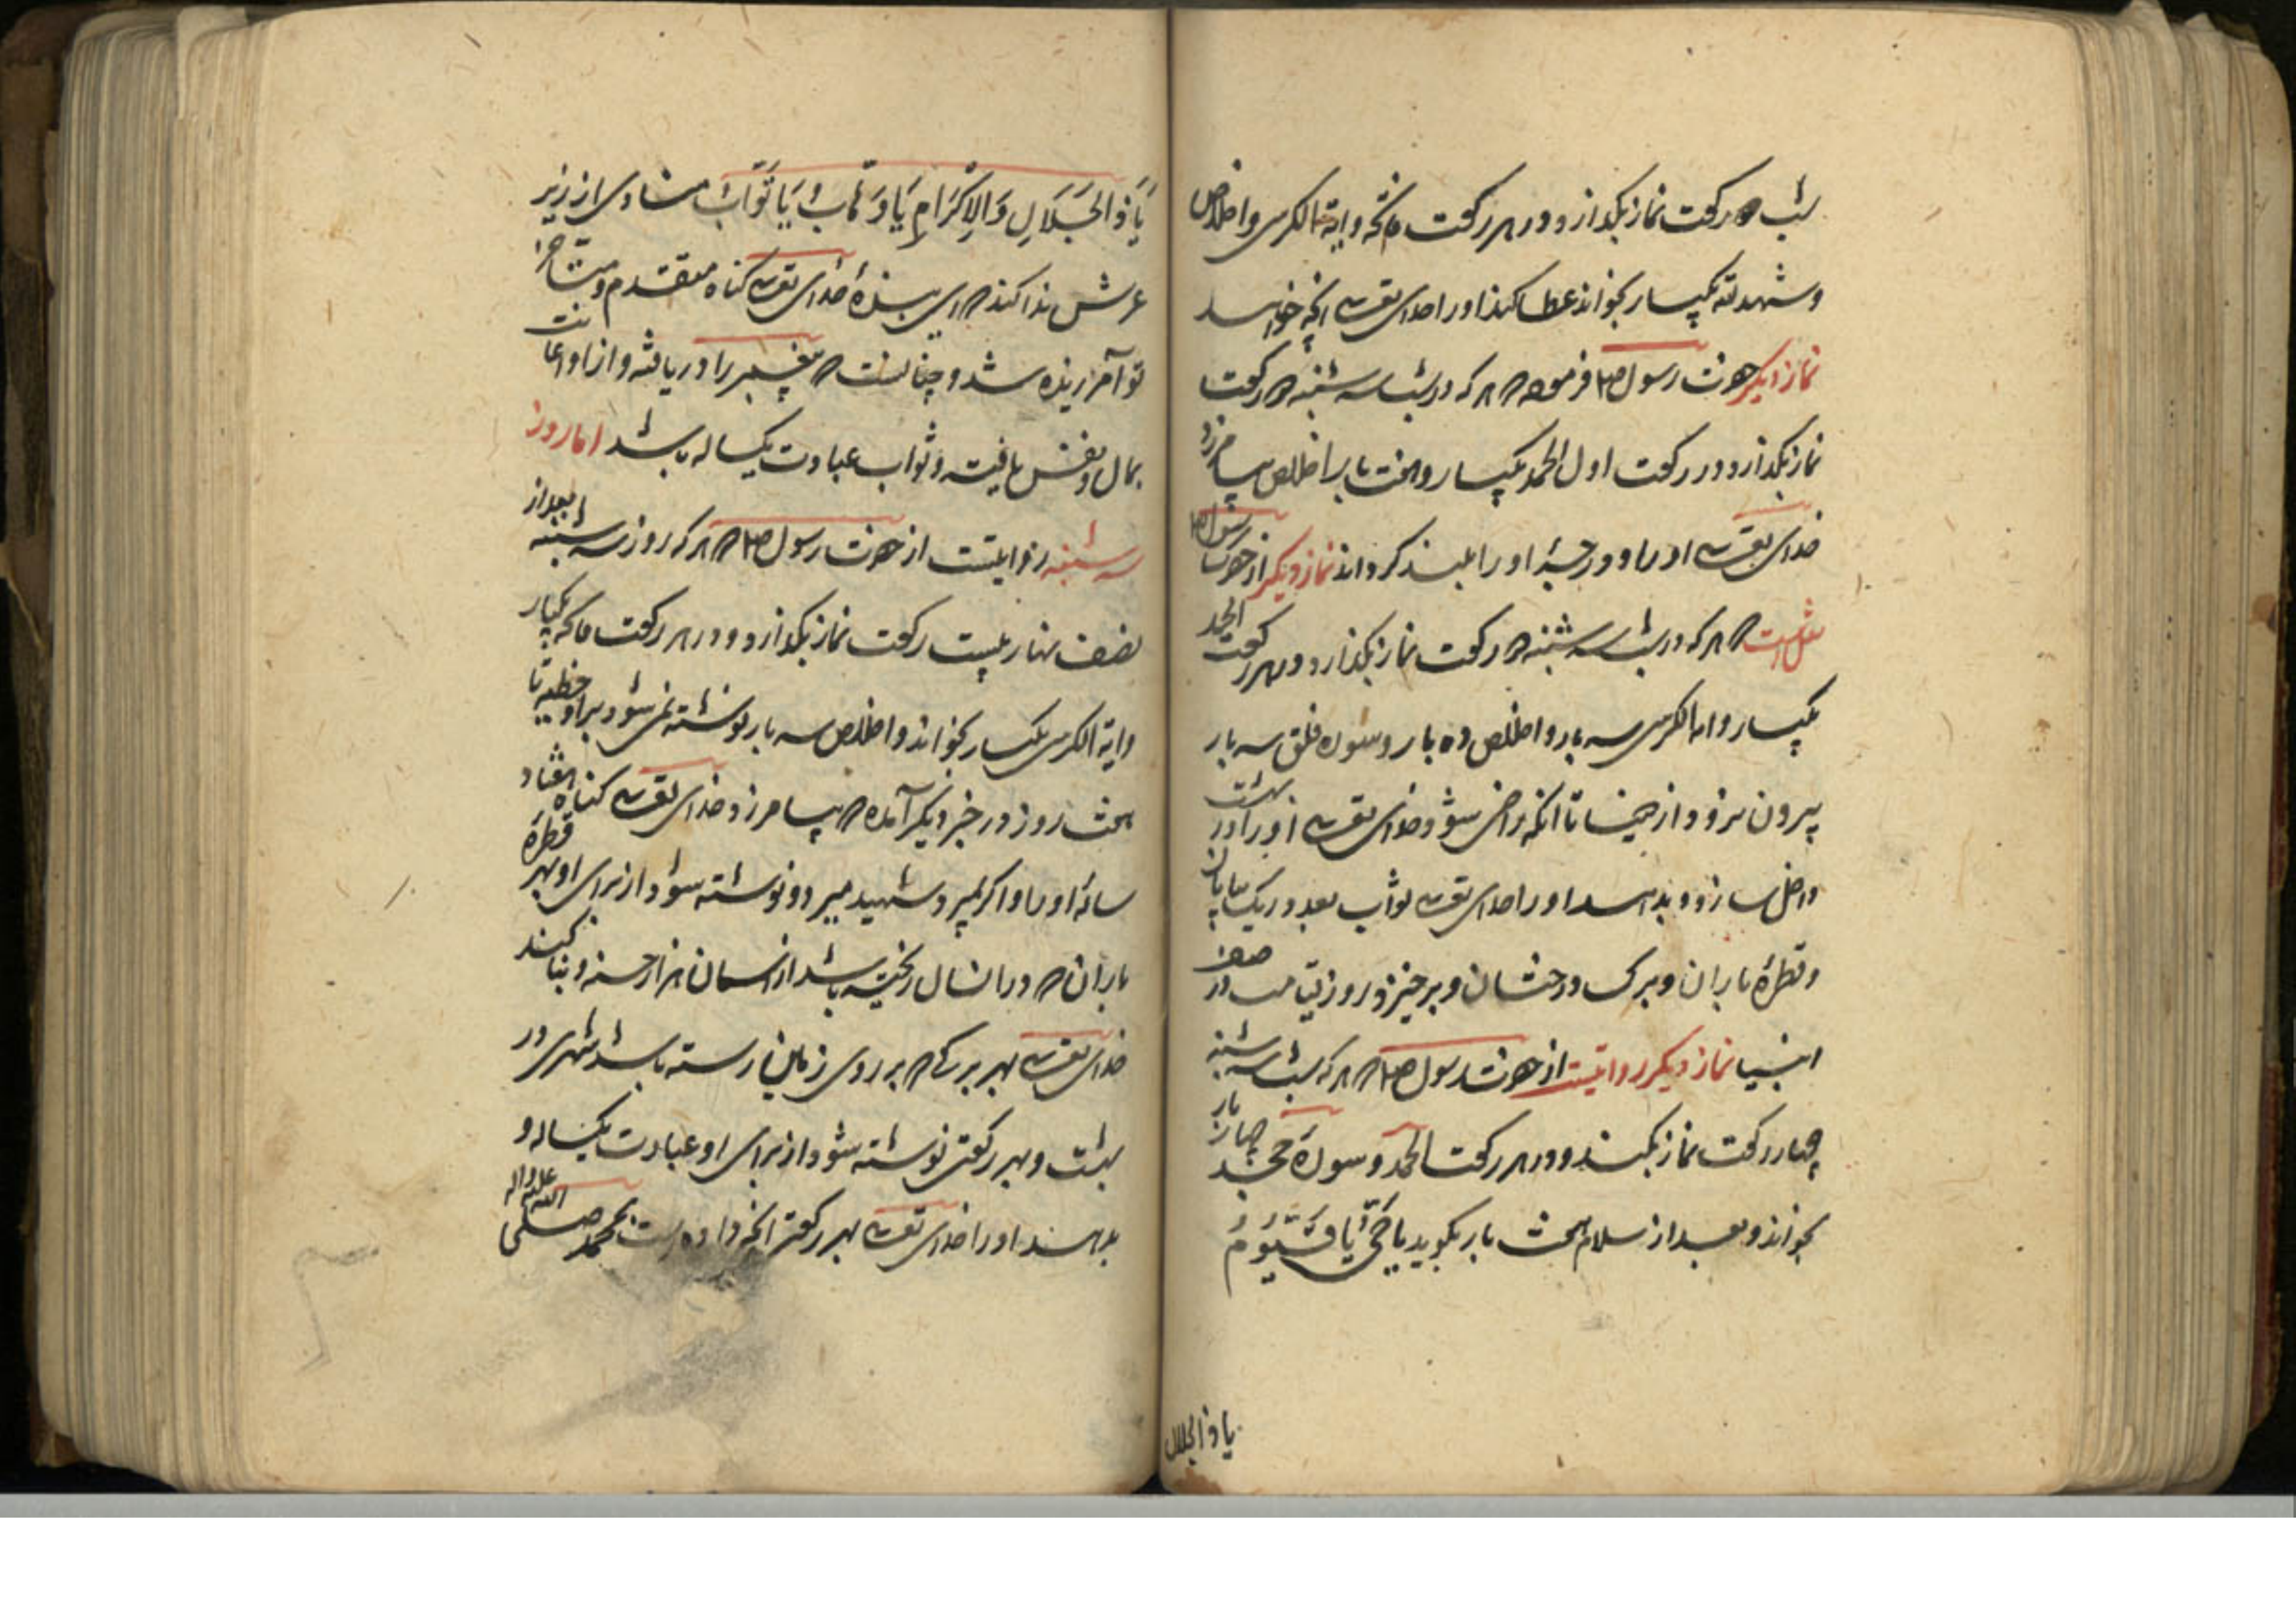 شب دو رکعت نماز بگذارد و در هر رکعت فاتحه و آیة الکرسی و اخلاص
و شهد الله یکبار بخواند عطا کند او را خدای تعالی آنچه خواهد
نماز دیگر حضرت رسول ص فرموده که هر که در شب سه شنبه دو رکعت
نماز بگذارد و در رکعت اول الحمد یکبار و هفت بار اخلاص بیامرزد
خدای تعالی او را و درجهٔ او را بلند گرداند نماز دیگر از حضرت رسول ص
نقل است که هر که در شب سه شنبه دو رکعت نماز بگذارد و در هر رکعت الحمد
یکبار و آیة الکرسی سه بار و اخلاص ده بار و سوره فلق سه بار
بیرون نرود از دنیا تا آنکه راضی شود خدای تعالی او را در بهشت
داخل سازد و بدهد او را خدای تعالی ثواب بعدد ریک بیابان
و قطرهٔ باران و برک درختان و برخیزد روز قیامت در صف
انبیا نماز دیگر روایتست از حضرت رسول ص که هر که شب سه شنبه
چهار رکعت نماز بکند و در هر رکعت الحمد و سورهٔ جحد چهار بار
بخواند و بعد از سلام هفت بار بگوید یا حَیُّ یَا قَیُّومُ
یا ذالجلال
یَا ذَا الجَلَالِ وَالاِکْرَامِ یَا وَهَّابُ یَا تَوَّابُ منادی از زیر
عرش ندا کند که ای بندهٔ خدای تعالی گناه متقدم و متاخر
تو آمرزیده شد و چنانست که پیغمبر را دریافته و از او اعانت
بمال و نفس یافته و ثواب عبادت یکساله باشد اما روز
سه شنبه روایتست از حضرت رسول ص که هر که روز سه شنبه بعد از
نصف نهار بیست رکعت نماز بگذارد و در هر رکعت فاتحه یکبار
و آیة الکرسی یکبار بخواند و اخلاص سه بار نوشته نمی شود بر او خطیه تا
هفت روز در خبر دیگر آمده که بیامرزد خدای تعالی گناه هفتاد
ساله او را و اگر بمیرد شهید میرد و نوشته شود از برای او بهر قطره
باران که در آنسال ریخته باشد از آسمان هزار حسنه و بنا کند
خدای تعالی بهر برکی که بر روی زمین رسته باشد شهری در
بهشت و بهر رکعتی نوشته شود از برای او عبادت یکساله و
بدهد او را خدای تعالی بهر رکعتی آنچه داده است بمحمد صلی الله علیه و اله